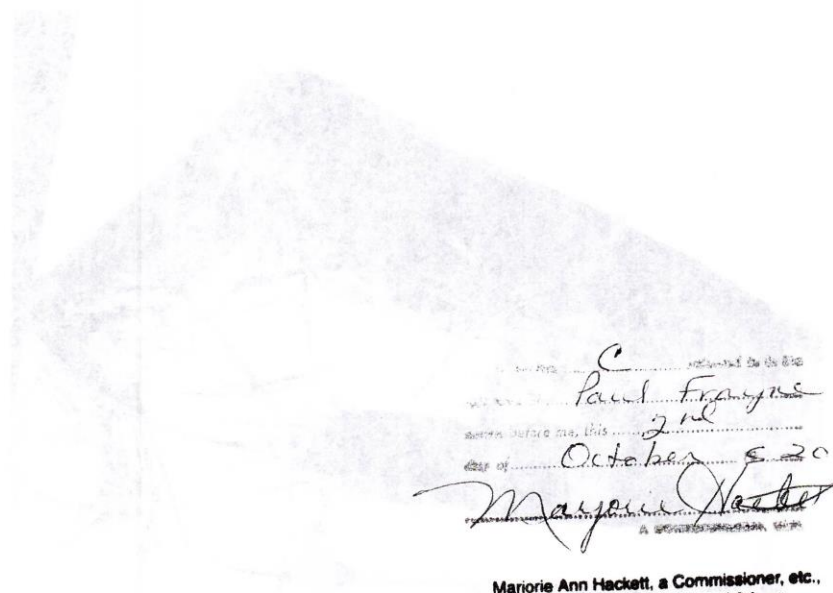 C referred to in the
Paul Frayne
sworn before me, this 2nd
day of October 20
Marjorie Hackett
A COMMISSIONER, ETC.
Marjorie Ann Hackett, a Commissioner, etc.,